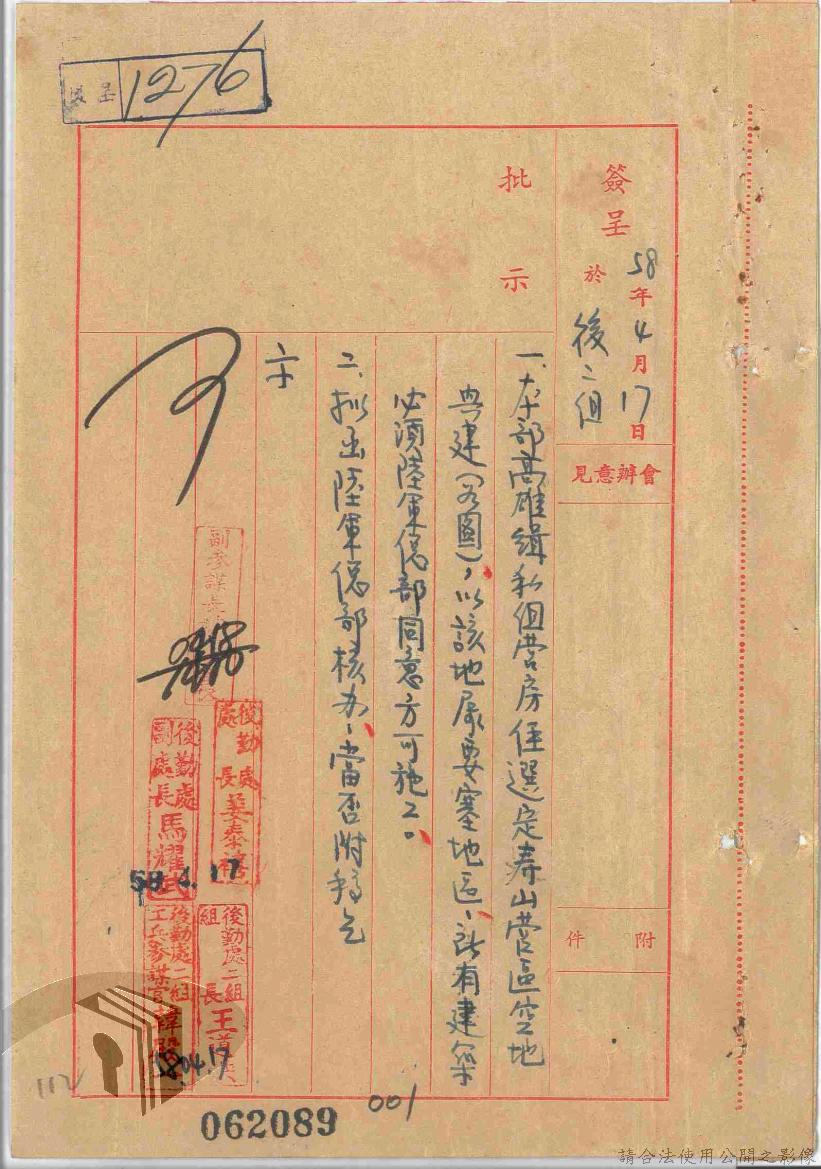 1276
簽呈
58年4月17日
於
後二組
會辦意見
附件
批示
一、本部高雄緝私組營房經選定壽山營區空地
興建(如圖),以該地屬要塞地區、所有建築
必須陸軍總部同意方可施工。
二、擬函陸軍總部核办、當否附稿乞
示
可
副參謀長
後勤處
處長
姜泰
後勤處
副處長
馬耀武
58.4.17
後勤處二組
組長
王
後勤處二組
工兵參謀官
韓
04.17
112
062089
001
請合法使用公開之影像